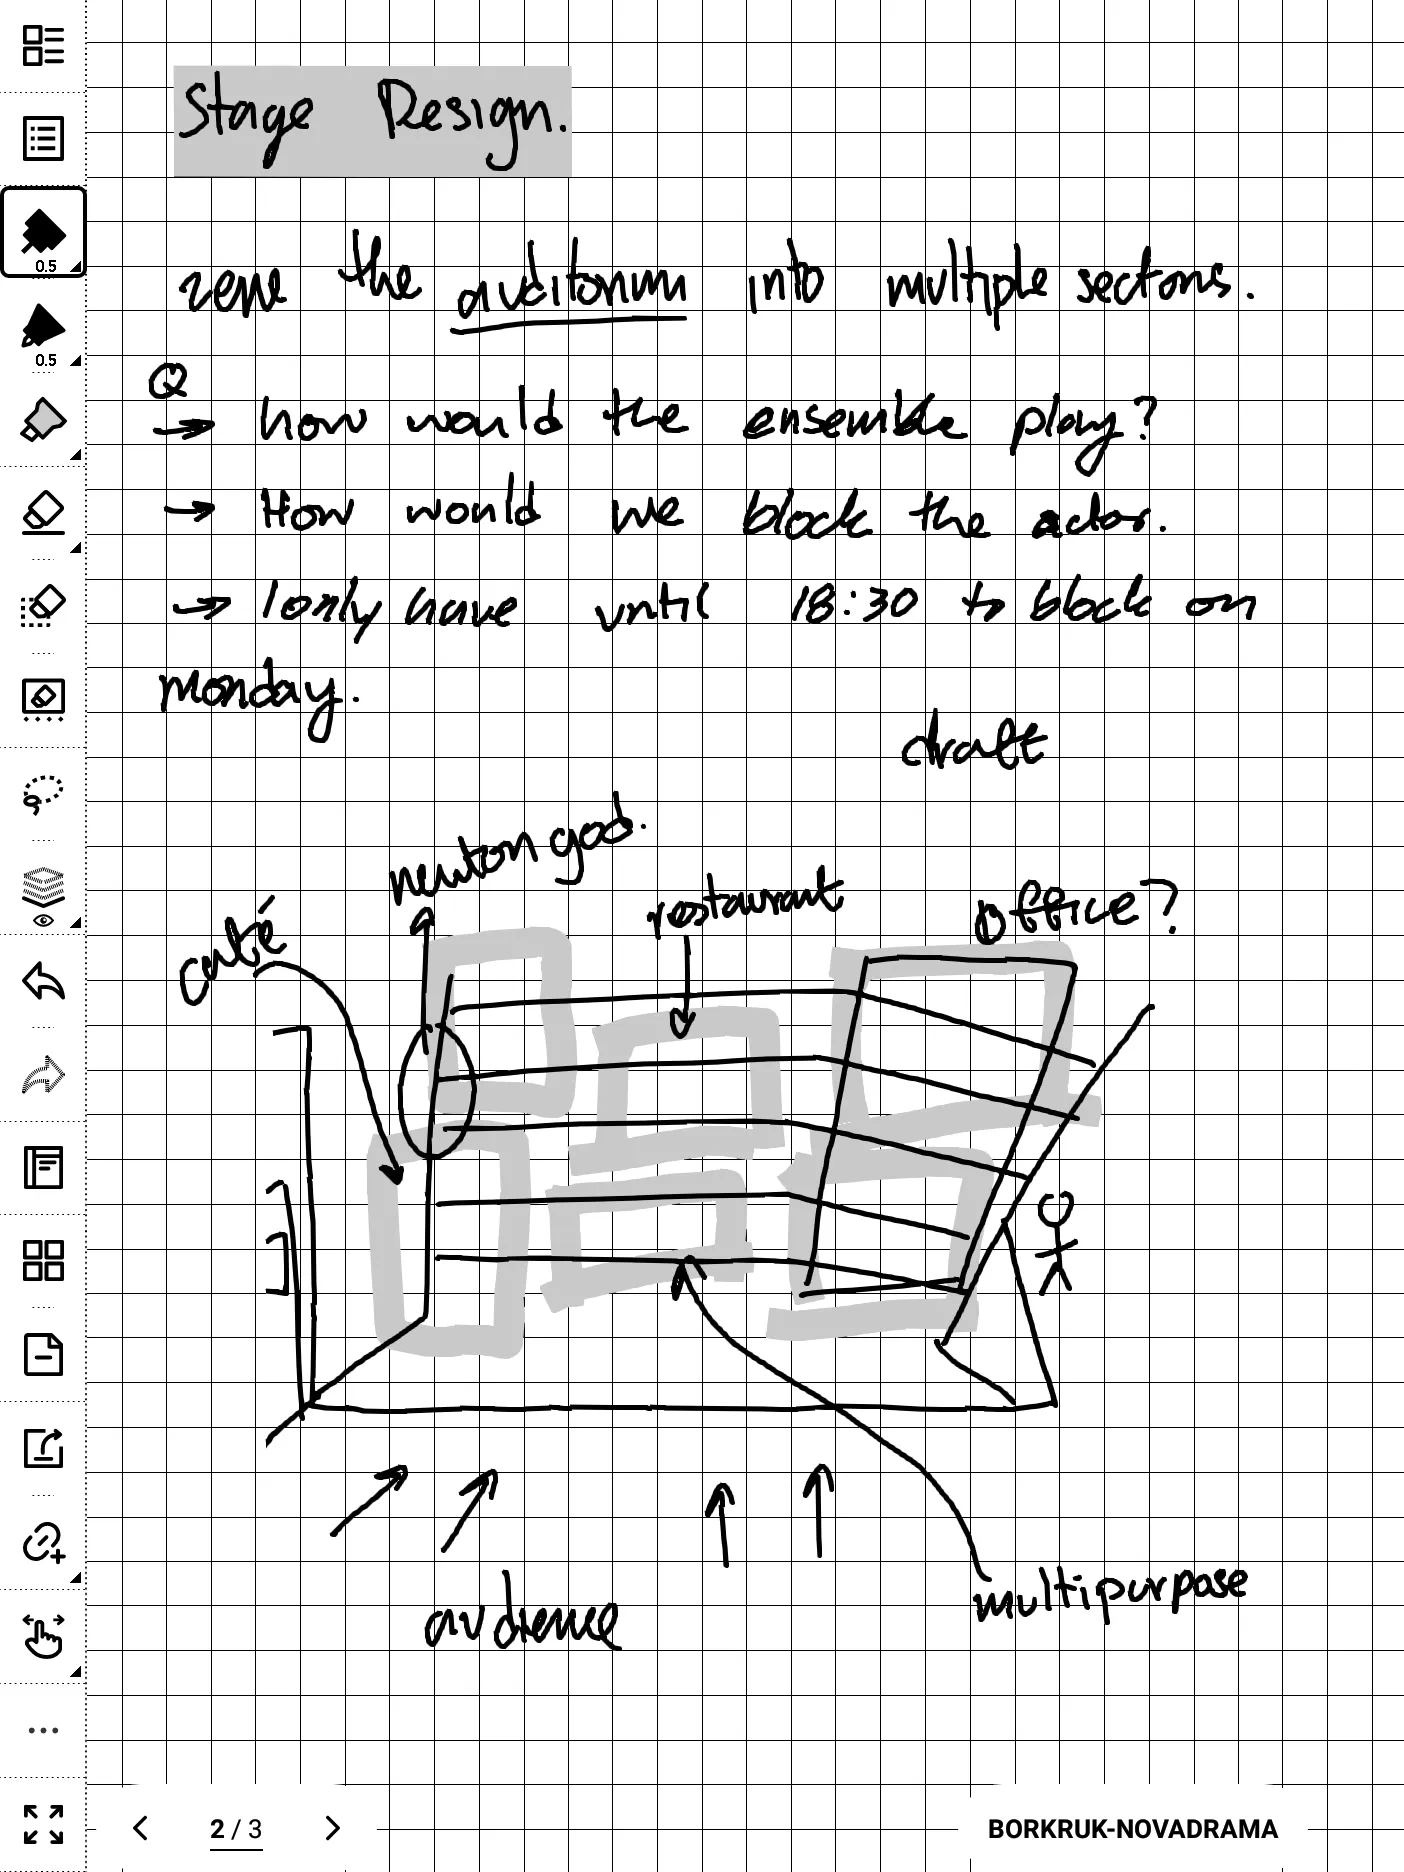 Stage Design.
zone the auditorium into multiple sections.
Q
→ how would the ensemble play?
→ How would we block the actor.
→ I only have until 18:30 to block on
monday.
draft
newton god.
café
restaurant
office?
audience
multipurpose
0.5
0.5
2 / 3
BORKRUK-NOVADRAMA